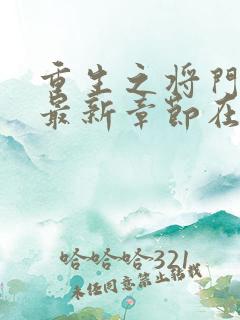 重生之将门
最新章节在
哈哈哈321
未经同意禁止转载